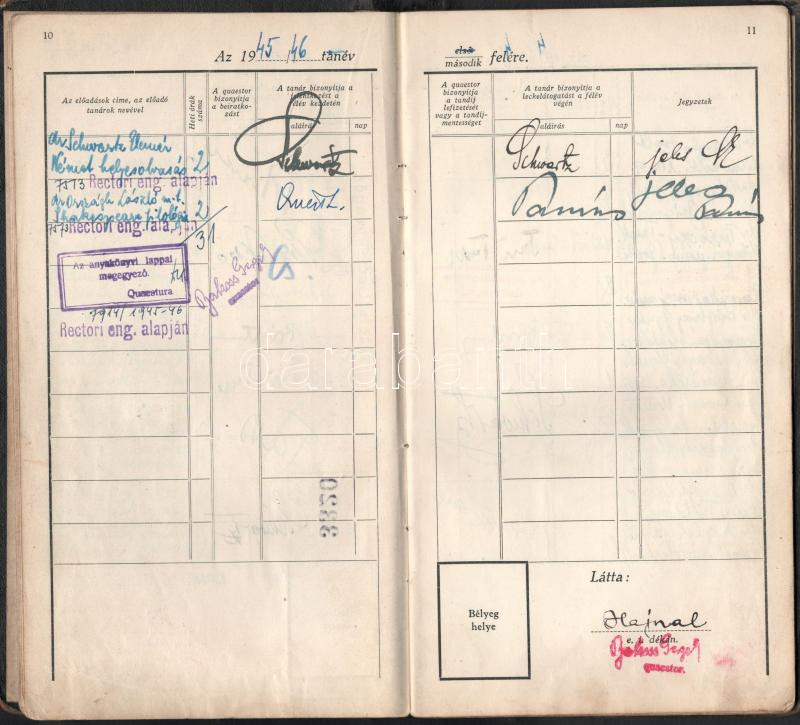 10
Az 1945/46 tanév
Az előadások címe, az előadó
tanárok nevével
Heti órák
száma
A quaestor
bizonyítja
a beiratko-
zást
A tanár bizonyítja a
jelentkezést a
félév kezdetén
aláírás
nap
dr. Schwartz Elemér
Német helyesolvasás 2
7573 Rectori eng. alapján
Schwartz
dr. Országh László m.t.
Shakespeare filológia 2
7573 Rectori eng. alapján
31
Az anyakönyvi lappal
megegyező.
Quaestura
quaestor
7914/1945-46
Rectori eng. alapján
3320
11
első
második felére.
A quaestor
bizonyítja
a tandíj
lefizetését
vagy a tandíj-
mentességet
A tanár bizonyítja a
leckelátogatást a félév
végén
aláírás
nap
Jegyzetek
Schwartz
jeles
jeles
Bélyeg
helye
Látta:
Hajnal
e. i. dékán.
quaestor.
darabanth